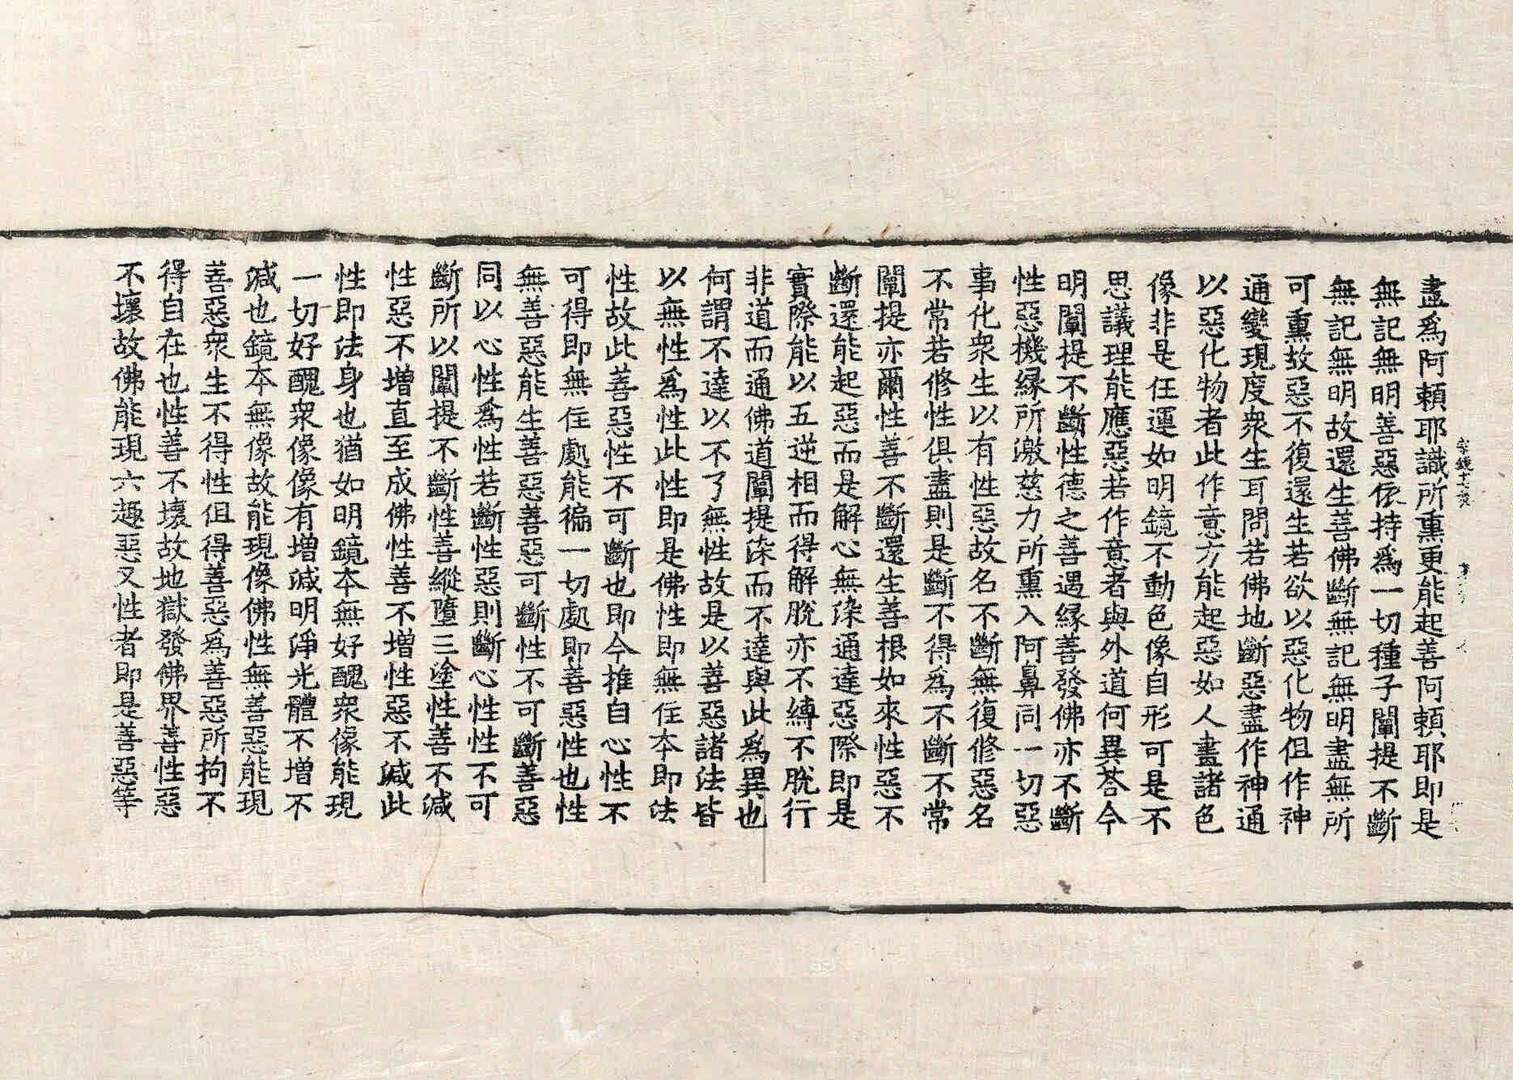 盡爲阿頼耶識所熏更能起善阿頼耶即是
無記無明善惡依持爲一切種子闡提不斷
無記無明故還生善佛斷無記無明盡無所
可熏故惡不復還生若欲以惡化物但作神
通變現度衆生耳問若佛地斷惡盡作神通
以惡化物者此作意方能起惡如人畫諸色
像非是任運如明鏡不動色像自形可是不
思議理能應惡若作意者與外道何異荅今
明闡提不斷性德之善遇緣善發佛亦不斷
性惡機緣所激慈力所熏入阿鼻同一切惡
事化衆生以有性惡故名不斷無復修惡名
不常若修性俱盡則是斷不得爲不斷不常
闡提亦爾性善不斷還生善根如來性惡不
斷還能起惡而是解心無染通達惡際即是
實際能以五逆相而得解脫亦不縛不脫行
非道而通佛道闡提染而不達與此爲異也
何謂不達以不了無性故是以善惡諸法皆
以無性爲性此性即是佛性即無住本即法
性故此善惡性不可斷也即今推自心性不
可得即無住處能徧一切處即善惡性也性
無善惡能生善惡善惡可斷性不可斷善惡
同以心性爲性若斷性惡則斷心性性不可
斷所以闡提不斷性善縱墮三塗性善不減
性惡不增直至成佛性善不增性惡不減此
性即法身也猶如明鏡本無好醜衆像能現
一切好醜衆像像有增減明淨光體不增不
減也鏡本無像故能現像佛性無善惡能現
善惡衆生不得性但得善惡爲善惡所拘不
得自在也性善不壞故地獄發佛界善性惡
不壞故佛能現六趣惡又性者即是善惡等